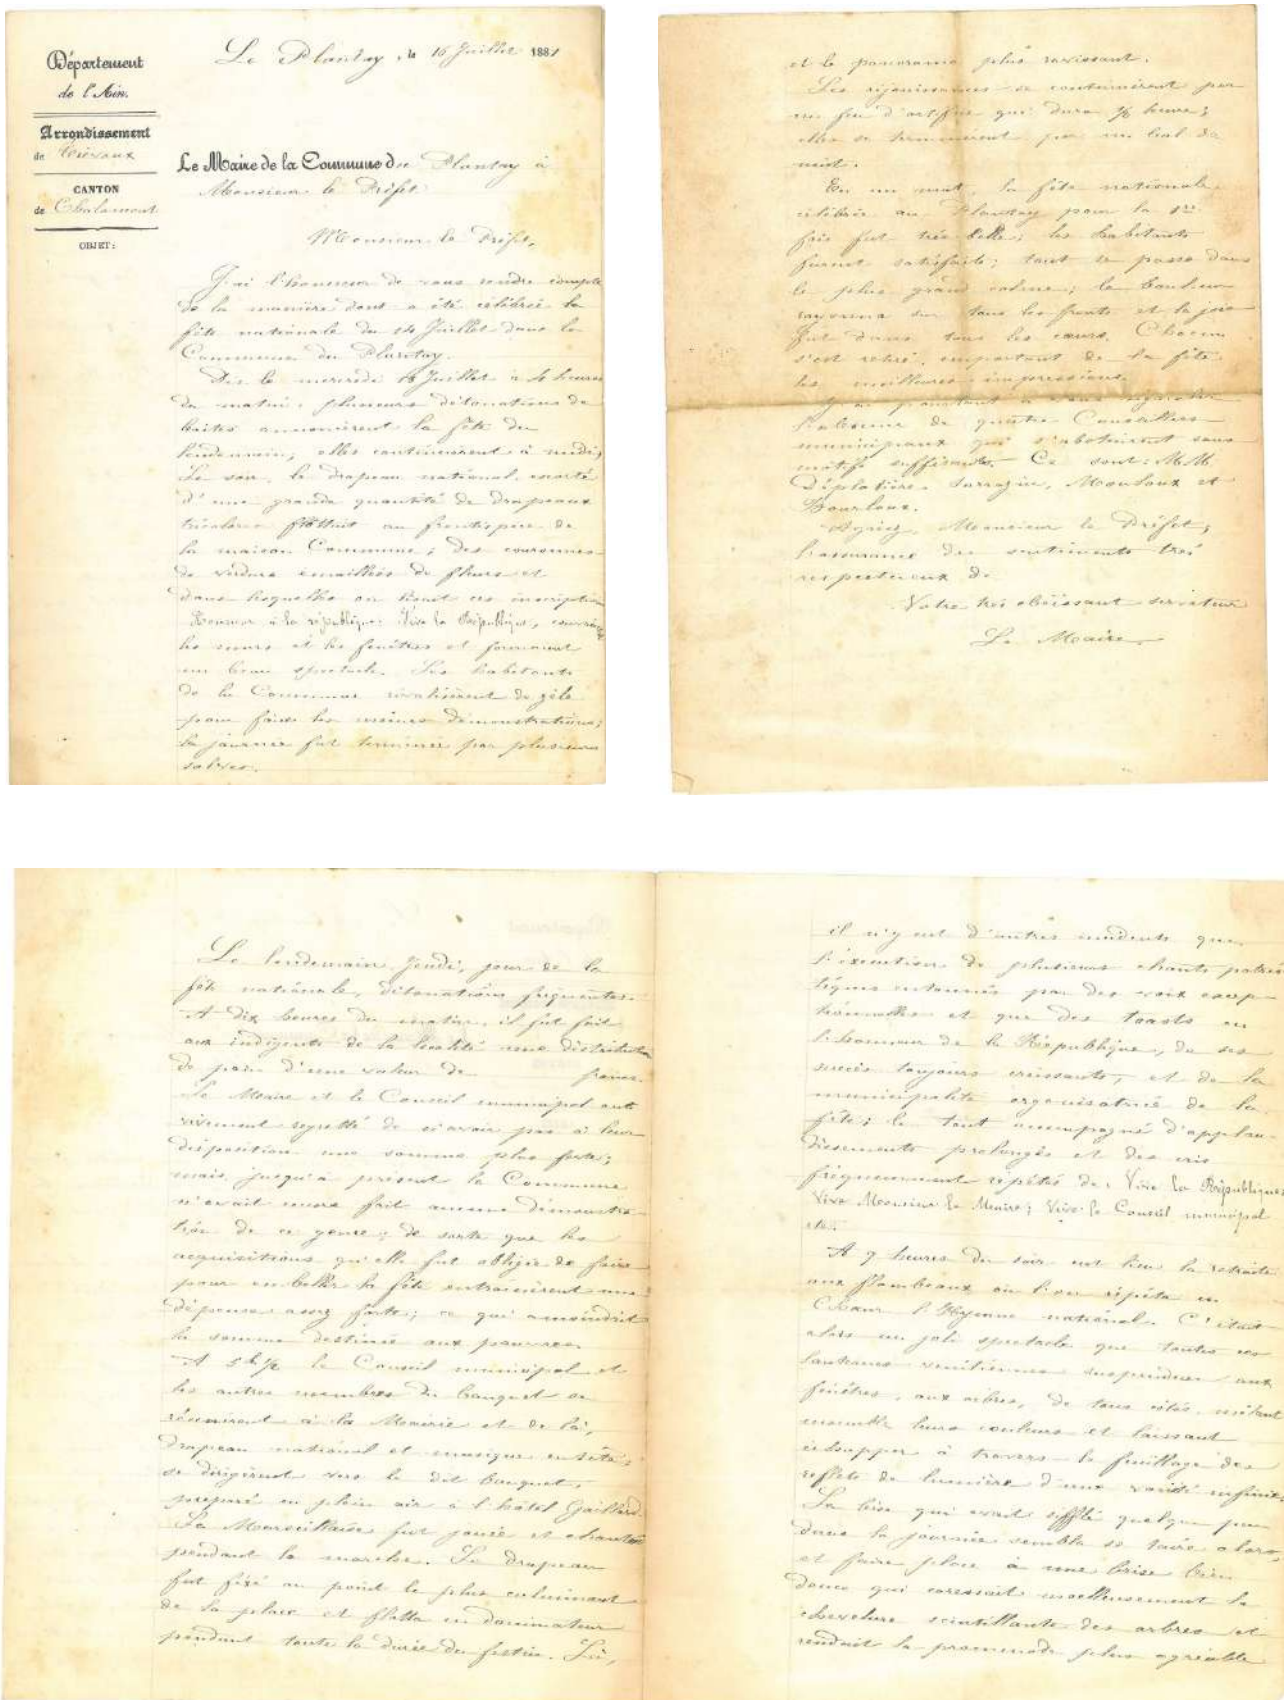 Département
de l'Ain.
Arrondissement
de Trévoux
CANTON
de Chalamont
OBJET:
Le Plantay, le 16 Juillet 1881
Le Maire de la Commune du Plantay à
Monsieur le Préfet
Monsieur le Préfet,
J'ai l'honneur de vous rendre compte
de la manière dont a été célébrée la
fête nationale du 14 Juillet dans la
Commune du Plantay.
Dès le mercredi 13 Juillet à 4 heures
du matin, plusieurs détonations de
boîtes annoncèrent la fête du
lendemain, elles continuèrent à midi;
Le soir, le drapeau national, escorté
d'une grande quantité de drapeaux
tricolores flottait au frontispice de
la maison Commune; des couronnes
de verdure émaillées de fleurs et
dans lesquelles on lisait ces inscriptions
Honneur à la république: Vive la République, couvraient
les murs et les fenêtres et formaient
un beau spectacle. Les habitants
de la Commune rivalisèrent de zèle
pour faire les mêmes démonstrations;
la journée fut terminée par plusieurs
salves.
Le lendemain, jeudi, jour de la
fête nationale, détonations fréquentes.
A dix heures du matin, il fut fait
aux indigents de la localité une distribution
de pain d'une valeur de francs.
Le Maire et le Conseil municipal ont
vivement regretté de n'avoir pas à leur
disposition une somme plus forte;
mais, jusqu'à présent la Commune
n'avait encore fait aucune démonstra-
tion de ce genre; de sorte que les
acquisitions qu'elle fut obligée de faire
pour embellir la fête entraînèrent une
dépense assez forte; ce qui amoindrit
la somme destinée aux pauvres.
A 5h ½ le Conseil municipal et
les autres membres du banquet se
réunirent à la Mairie et de là,
drapeau national et musique en tête;
se dirigèrent vers le dit banquet,
préparé en plein air à l'hôtel Gaillard.
La Marseillaise fut jouée et chantée
pendant la marche. Le drapeau
fut fixé au point le plus culminant
de la place et flotta en dominateur
pendant toute la durée du festin. Là,
il n'y eut d'autres incidents que
l'exécution de plusieurs chants patrio-
tiques entonnés par des voix excep-
tionnelles et que des toasts en
l'honneur de la République, de ses
succès toujours croissants, et de la
municipalité organisatrice de la
fête; le tout accompagné d'applau-
dissements prolongés et des cris
fréquemment répétés de: Vive la République;
Vive Monsieur le Maire; Vive le Conseil municipal
etc.
A 9 heures du soir eut lieu la retraite
aux flambeaux où l'on répéta en
Chœur l'Hymne national. C'était
alors un joli spectacle que toutes ces
lanternes vénitiennes suspendues aux
fenêtres, aux arbres, de tous côtés, mêlant
ensemble leurs couleurs et laissant
échapper à travers le feuillage des
reflets de lumière d'une variété infinie.
La bise qui avait sifflé quelque peu
dans la journée sembla se taire alors,
et faire place à une brise bien
douce qui caressait moelleusement la
chevelure scintillante des arbres et
rendait la promenade plus agréable
et le panorama plus ravissant.
Les réjouissances se continuèrent par
un feu d'artifice qui dura ½ heure;
elles se terminèrent par un bal de
nuit.
En un mot, la fête nationale
célébrée au Plantay pour la 1re
fois fut très belle; les habitants
furent satisfaits; tout se passa dans
le plus grand calme; le bonheur
rayonna sur tous les fronts et la joie
fut dans tous les cœurs. Chacun
s'est retiré, emportant de la fête
les meilleures impressions.
J'ai pourtant à vous signaler
l'absence de quatre Conseillers
municipaux qui s'abstinrent sans
motifs suffisants. Ce sont: MM.
Déplatière, Sarrazin, et
Agréez, Monsieur le Préfet,
l'assurance des sentiments très
respectueux de
Votre très obéissant serviteur
Le Maire,